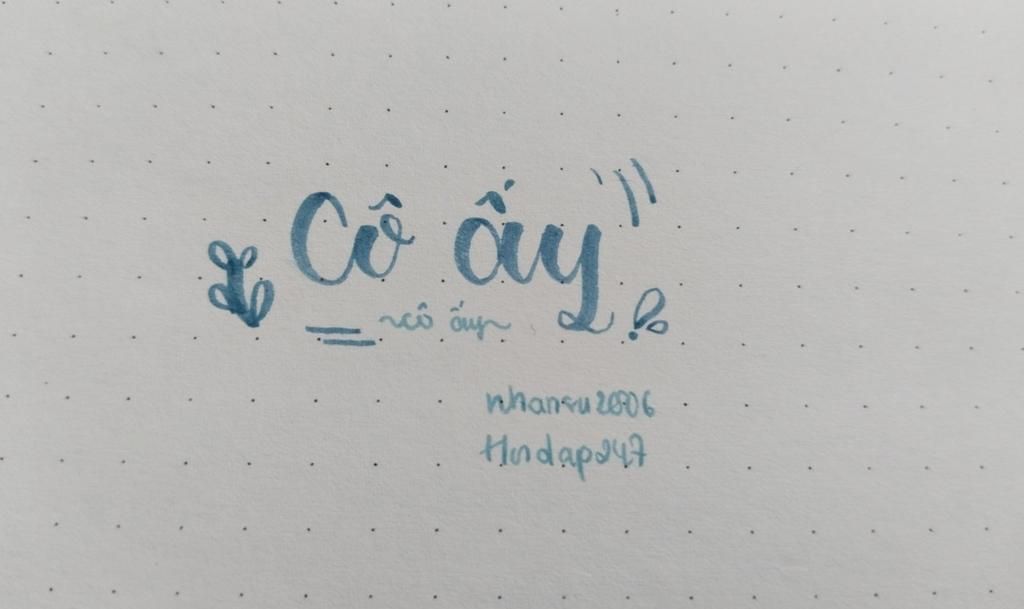 Cô ấy
~cô ấy~
nhansu2806
Hoidap247